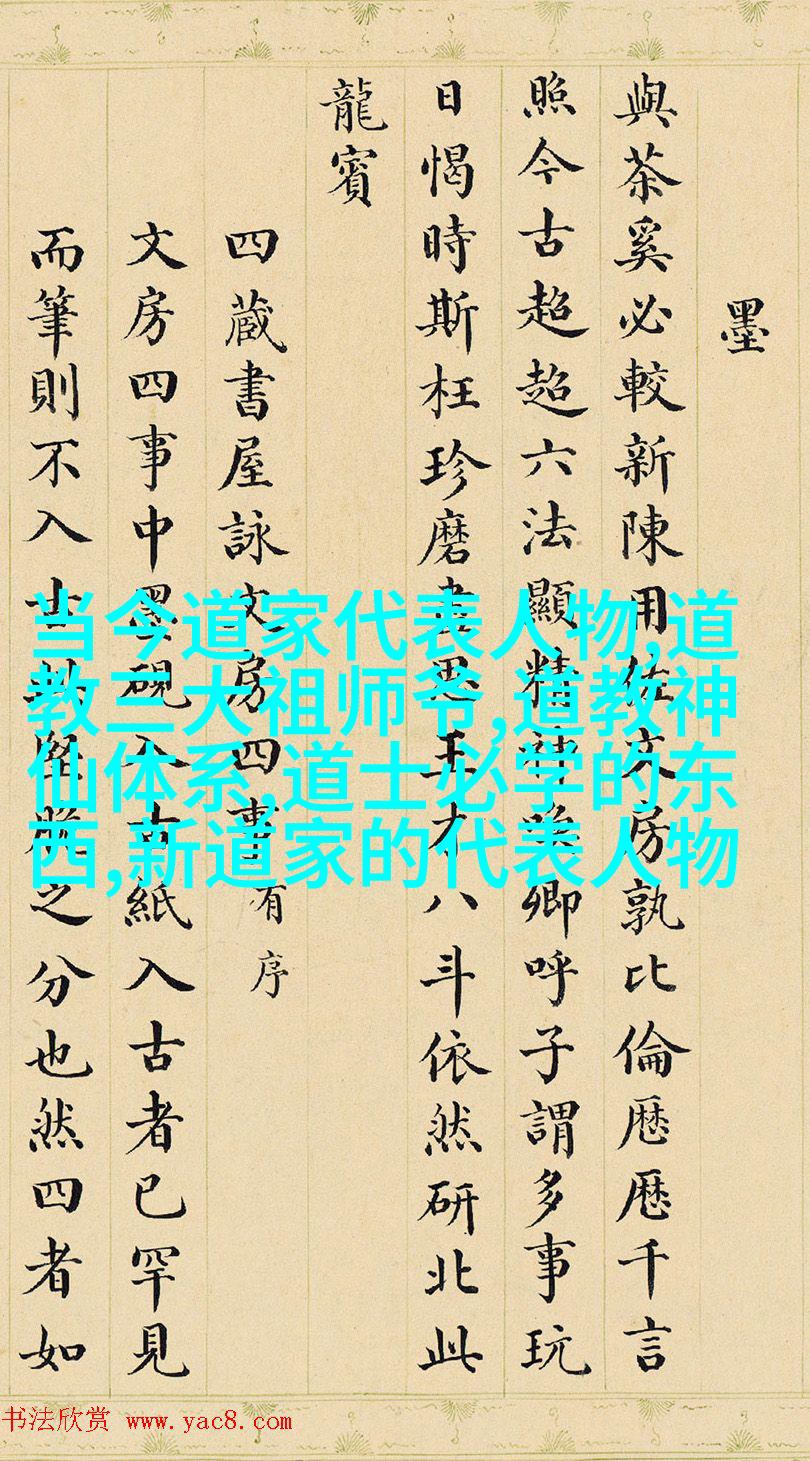 墨
與茶奚必較新陳用佐文房孰比倫厯厯千言
照今古超超六法顯精神喚卿呼子謂多事玩
日愒時斯枉珍磨盡思王才八斗依然研北此
龍賓
四蔵書屋詠文房四事有序
文房四事中墨硯入古紙入古者已罕見
而筆則不入古堅脆之分也然四者如
当今道家代表人物,道
教三大祖师爷,道教神
仙体系,道士必学的东
西,新道家的代表人物
书法欣赏 www.yac8.com